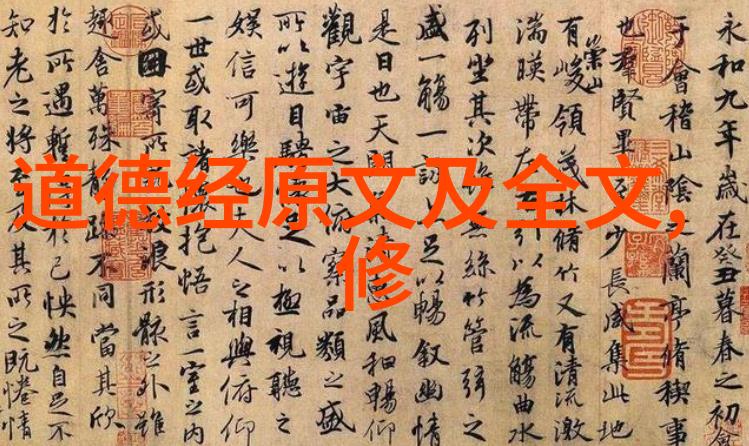 道德经原文及全文,
修
永和九年歲在癸丑暮春之初會
于會稽山陰之蘭亭脩稧事
也羣賢畢至少長咸集此地
有崇山峻領茂林脩竹又有清流激
湍暎帶左引以為流觴曲水
列坐其次無絲竹管弦之
盛一觴一詠足以暢叙幽情
是日也天朗風和暢仰
觀宇宙之大俯察品類之盛
所以遊目騁足以極視聽之
娛信可樂也夫人之相與俯仰
一世或取諸抱悟言一室之內
或因寄所浪形骸之外雖
趣舍萬殊靜躁不同當其欣
於所遇暫於己怏然自足不
知老之將至及其所之既惓情